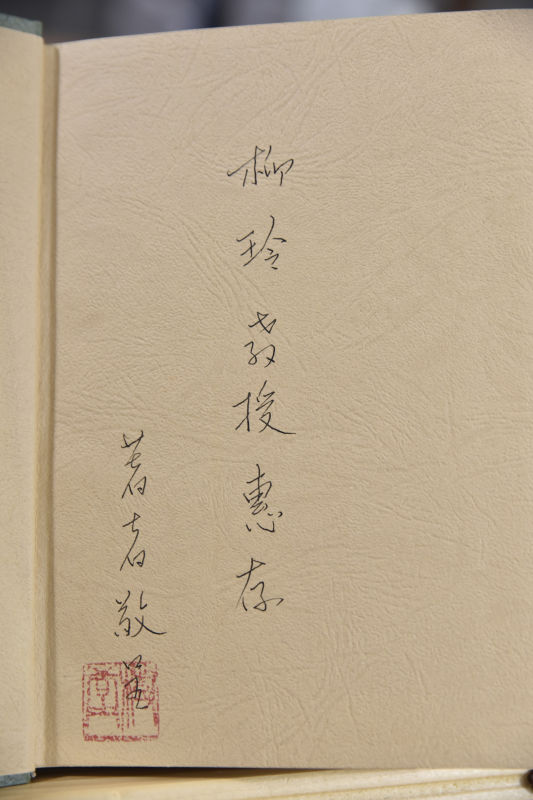 柳玲教授惠存
著者敬呈